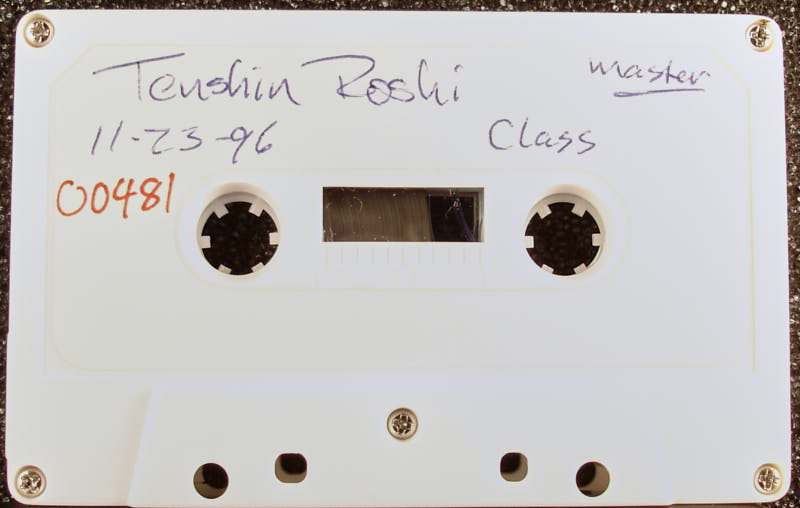 Tenshin Roshi master
11-23-96 Class
00481